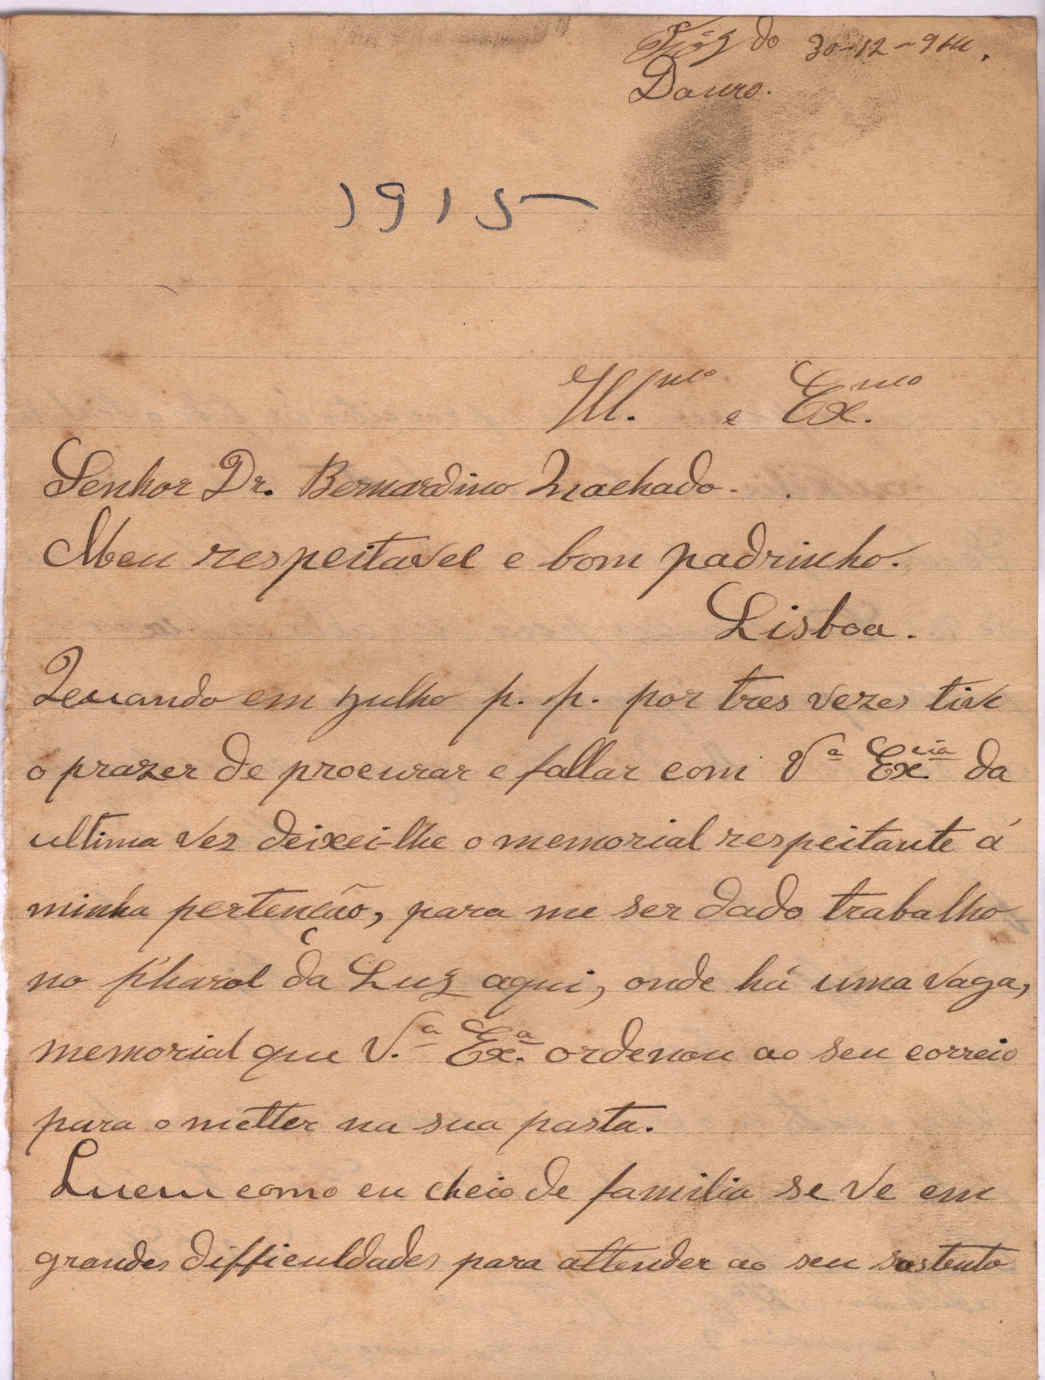 Fóz do 30-12-914.
Douro.
1915
Ill.mo e Ex.mo
Senhor Dr. Bernardino Machado.
Meu respeitavel e bom padrinho.
Lisboa.
Quando em julho p. p. por tres vezes tive
o prazer de procurar e fallar com Vª Ex.cia da
ultima vez deixei-lhe o memorial respeitante á
minha pertenção, para me ser dado trabalho
no pharol da Luz aqui, onde há uma vaga,
memorial que V.ª Ex.ª ordenou ao seu correio
para o metter na sua pasta.
Quem como eu cheio de familia se ve em
grandes difficuldades para attender ao seu sustento